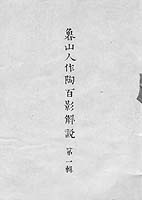 魯山人作陶百影解説 第一輯